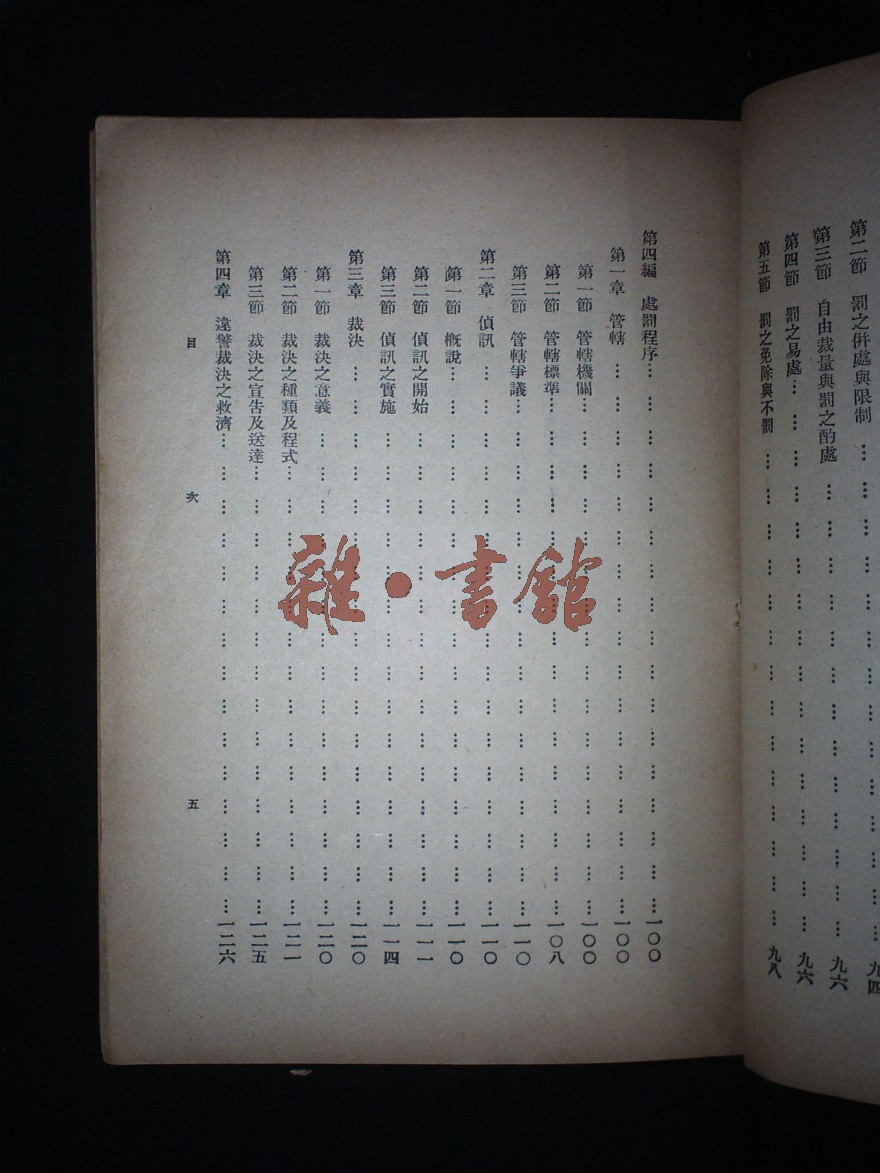 第二節 罰之併處與限制…………九四
第三節 自由裁量與罰之酌處…………九六
第四節 罰之易處…………九六
第五節 罰之免除與不罰…………九八
第四編 處罰程序…………一〇〇
第一章 管轄…………一〇〇
第一節 管轄機關…………一〇〇
第二節 管轄標準…………一〇八
第三節 管轄爭議…………一一〇
第二章 偵訊…………一一〇
第一節 概說…………一一〇
第二節 偵訊之開始…………一一一
第三節 偵訊之實施…………一一四
第三章 裁決…………一二〇
第一節 裁決之意義…………一二〇
第二節 裁決之種類及程式…………一二一
第三節 裁決之宣告及送達…………一二五
第四章 違警裁決之救濟…………一二六
目 次 五
雜·書館